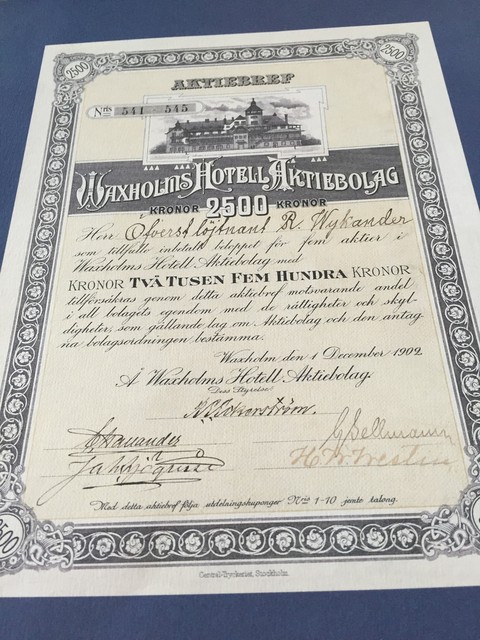 2500 2500
AKTIEBREF
Nris 541 - 545
WAXHOLMS HOTELL AKTIEBOLAG
KRONOR 2500 KRONOR
Herr Öfverstlöjtnant R. Wykander
som tillfullo inbetalt beloppet för fem aktier i
Waxholms Hotell Aktiebolag med
KRONOR TVÅ TUSEN FEM HUNDRA KRONOR
tillförsäkras genom detta aktiebref motsvarande andel
i all bolagets egendom med de rättigheter och skyl-
digheter, som gällande lag om Aktiebolag och den antag-
na bolagsordningen bestämma.
Waxholm den 1 December 1902
Å Waxholms Hotell Aktiebolag.
Dess Styrelse:
G Bellmann
H. W. Westin
Med detta aktiebref följa utdelningskuponger Nris 1-10 jemte talong.
2500 2500
Central-Tryckeriet, Stockholm.